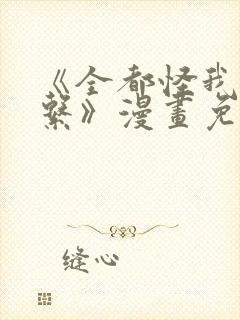 《全都怪我
繫》漫畫免
缝心